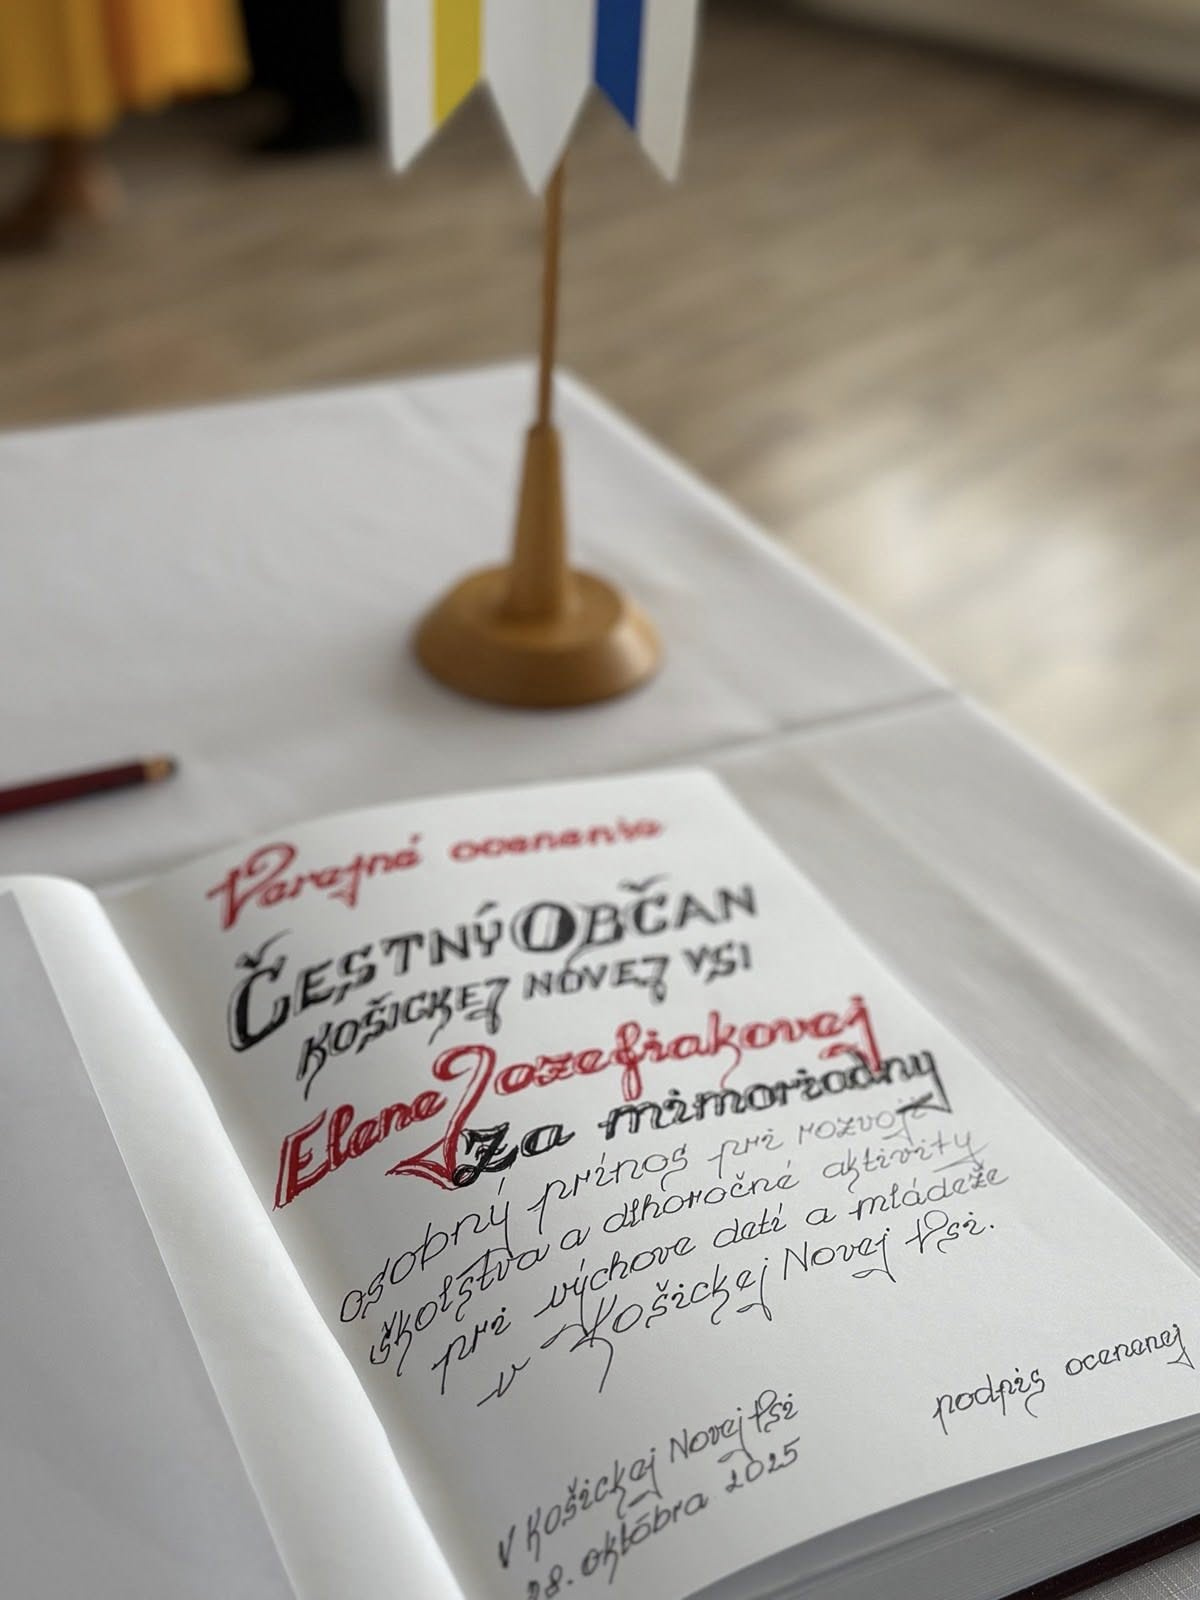 Verejné ocenenie
ČESTNÝ OBČAN
KOŠICKEJ NOVEJ VSI
Elene Jozefiakovej
Za mimoriadny
osobný prínos pri rozvoji
školstva a dlhoročné aktivity
pri výchove detí a mládeže
v Košickej Novej Vsi.
podpis ocenenej
V Košickej Novej Vsi
28. októbra 2025